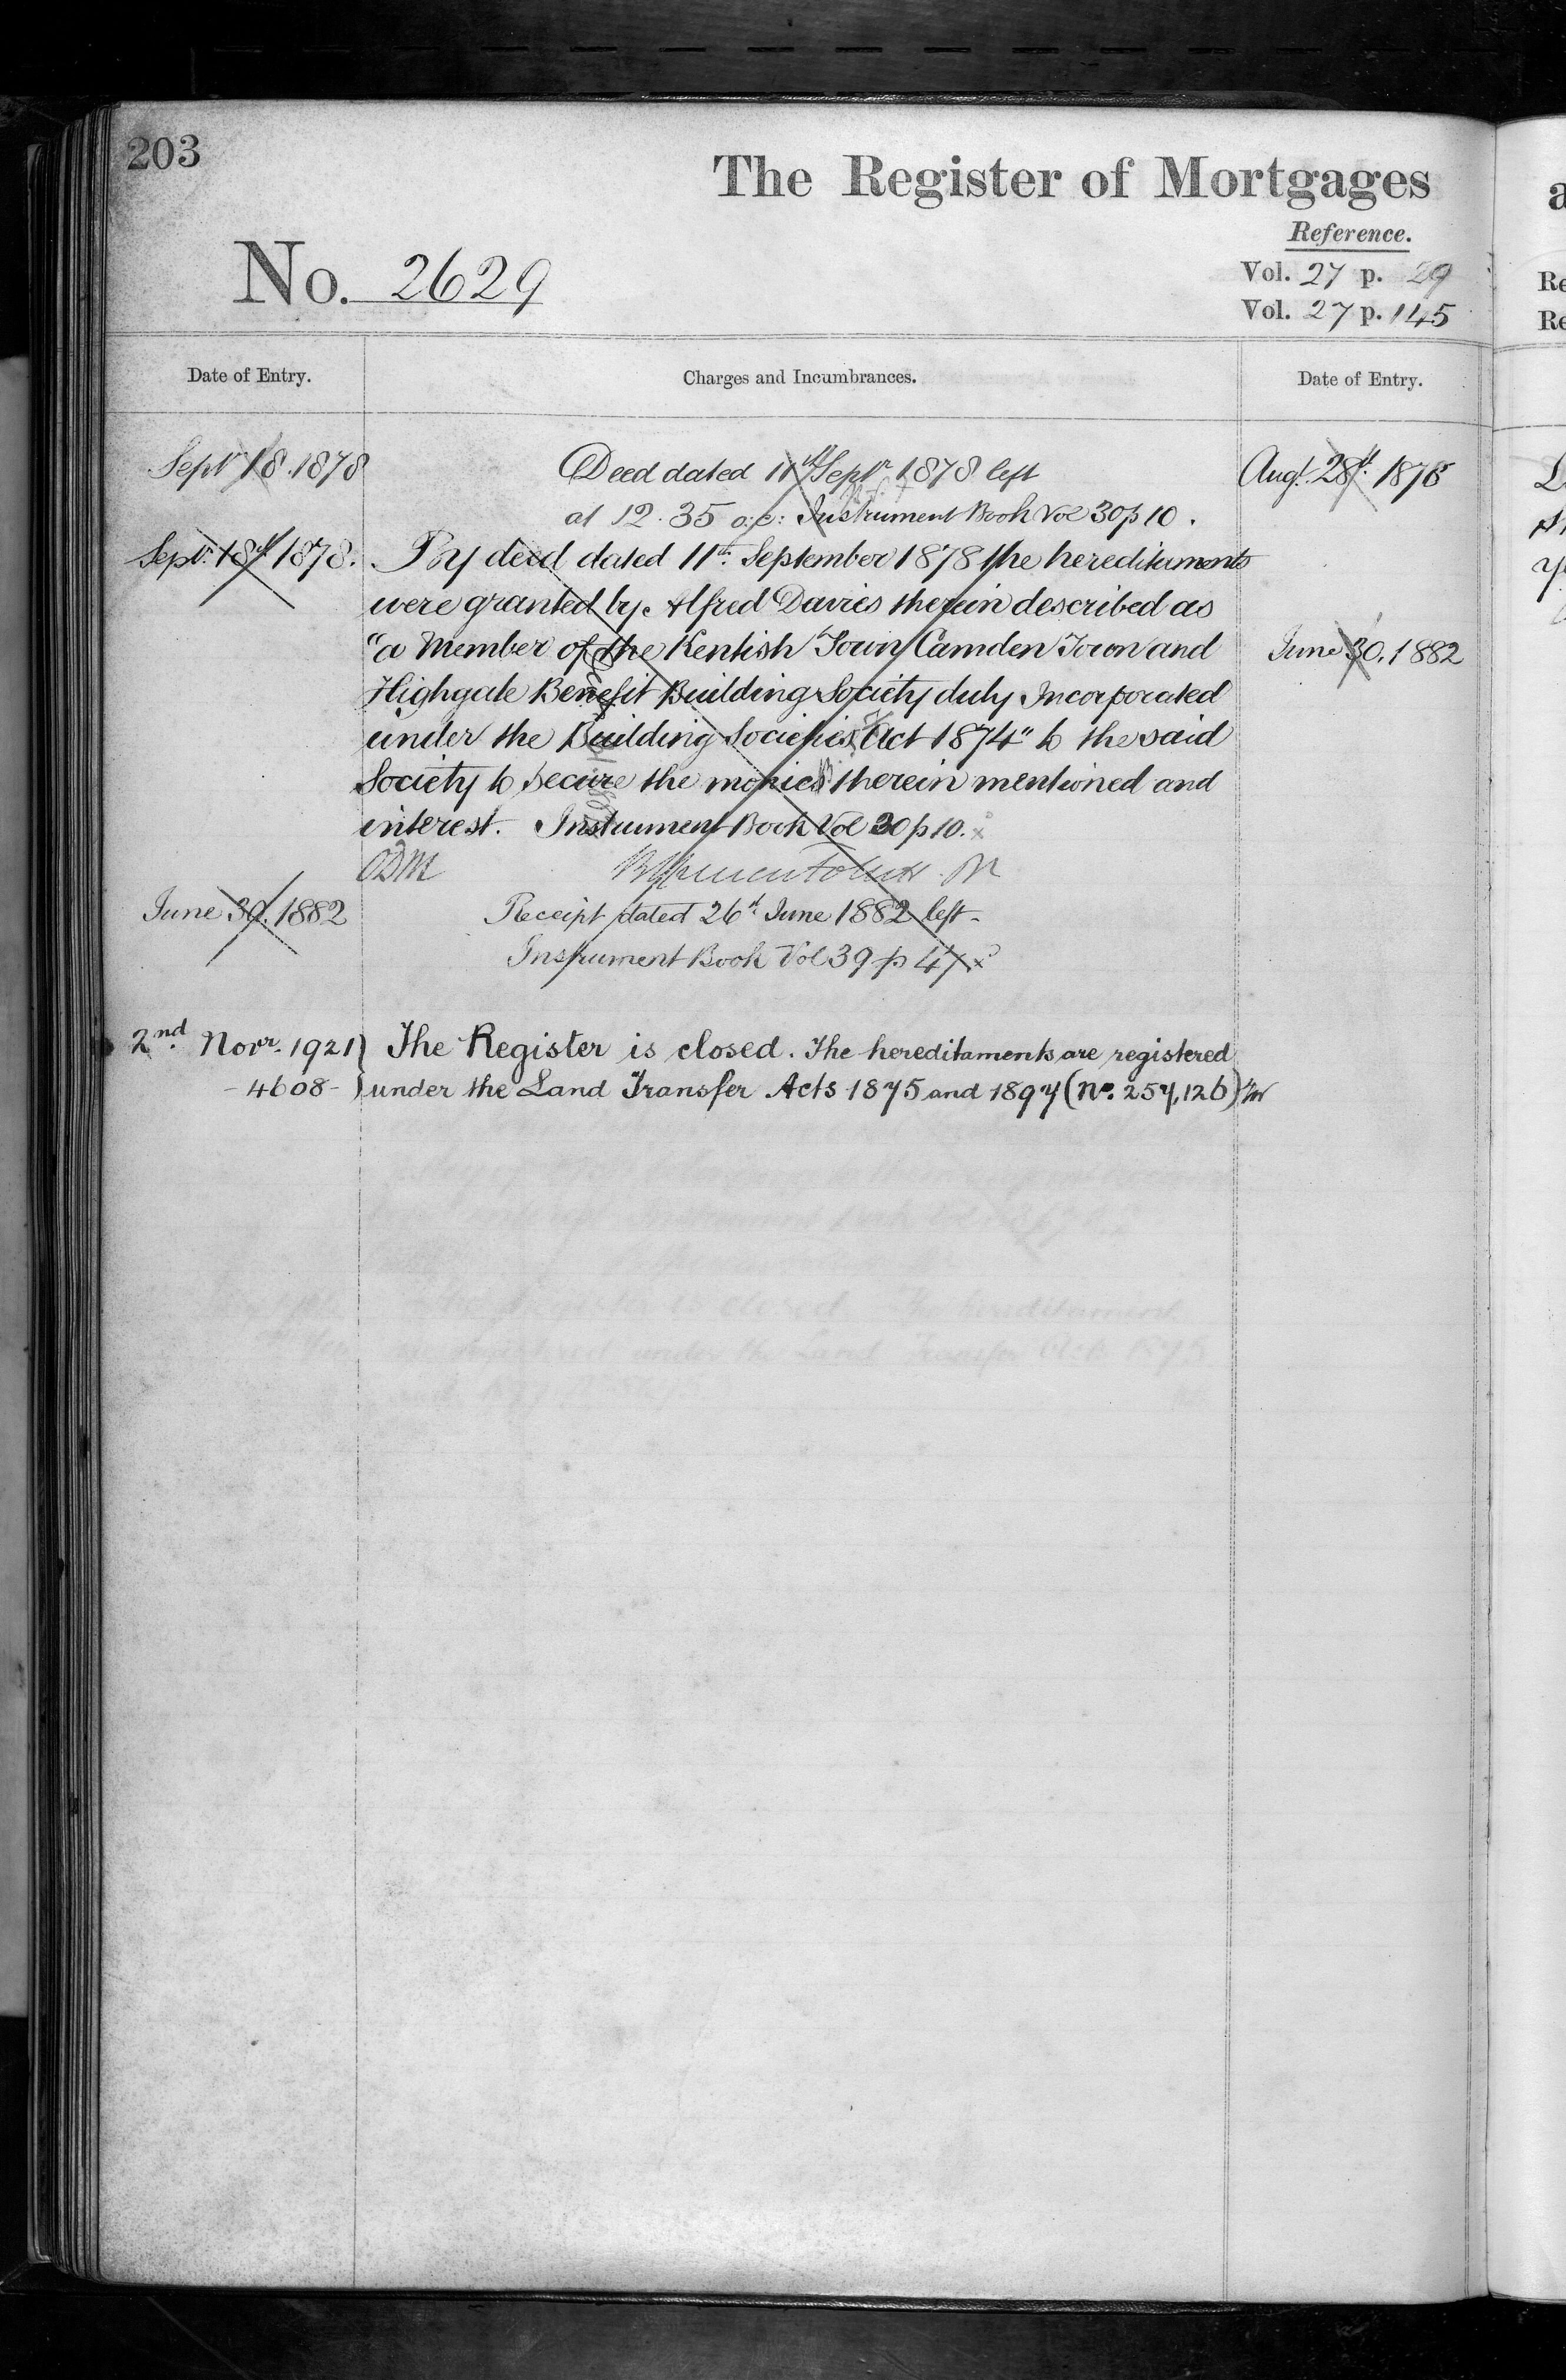 203
The Register of Mortgages
Reference.
No. 2629
Vol. 27 p. 29
Vol. 27 p. 145
Date of Entry. Charges and Incumbrances. Date of Entry.
Septr 18. 1878 Deed dated 11th Septr 1878 left Augt. 28th. 1878
at 12.35 o.c: Instrument Book Vol 30 p 10.
Septr. 18th 1878. By deed dated 11th. September 1878 the hereditaments
were granted by Alfred Davies therein described as
"a Member of the Kentish Town Camden Town and June 30. 1882
Highgate Benefit Building Society duly Incorporated
under the Building Societies Act 1874" to the said
Society to secure the monies therein mentioned and
interest. Instrument Book Vol 30 p 10.
June 30. 1882 Receipt dated 26th June 1882 left.
Instrument Book Vol 39 p 47
2nd. Novr. 1921 } The Register is closed. The hereditaments are registered
- 4608 - } under the Land Transfer Acts 1875 and 1897 (No. 257,126)